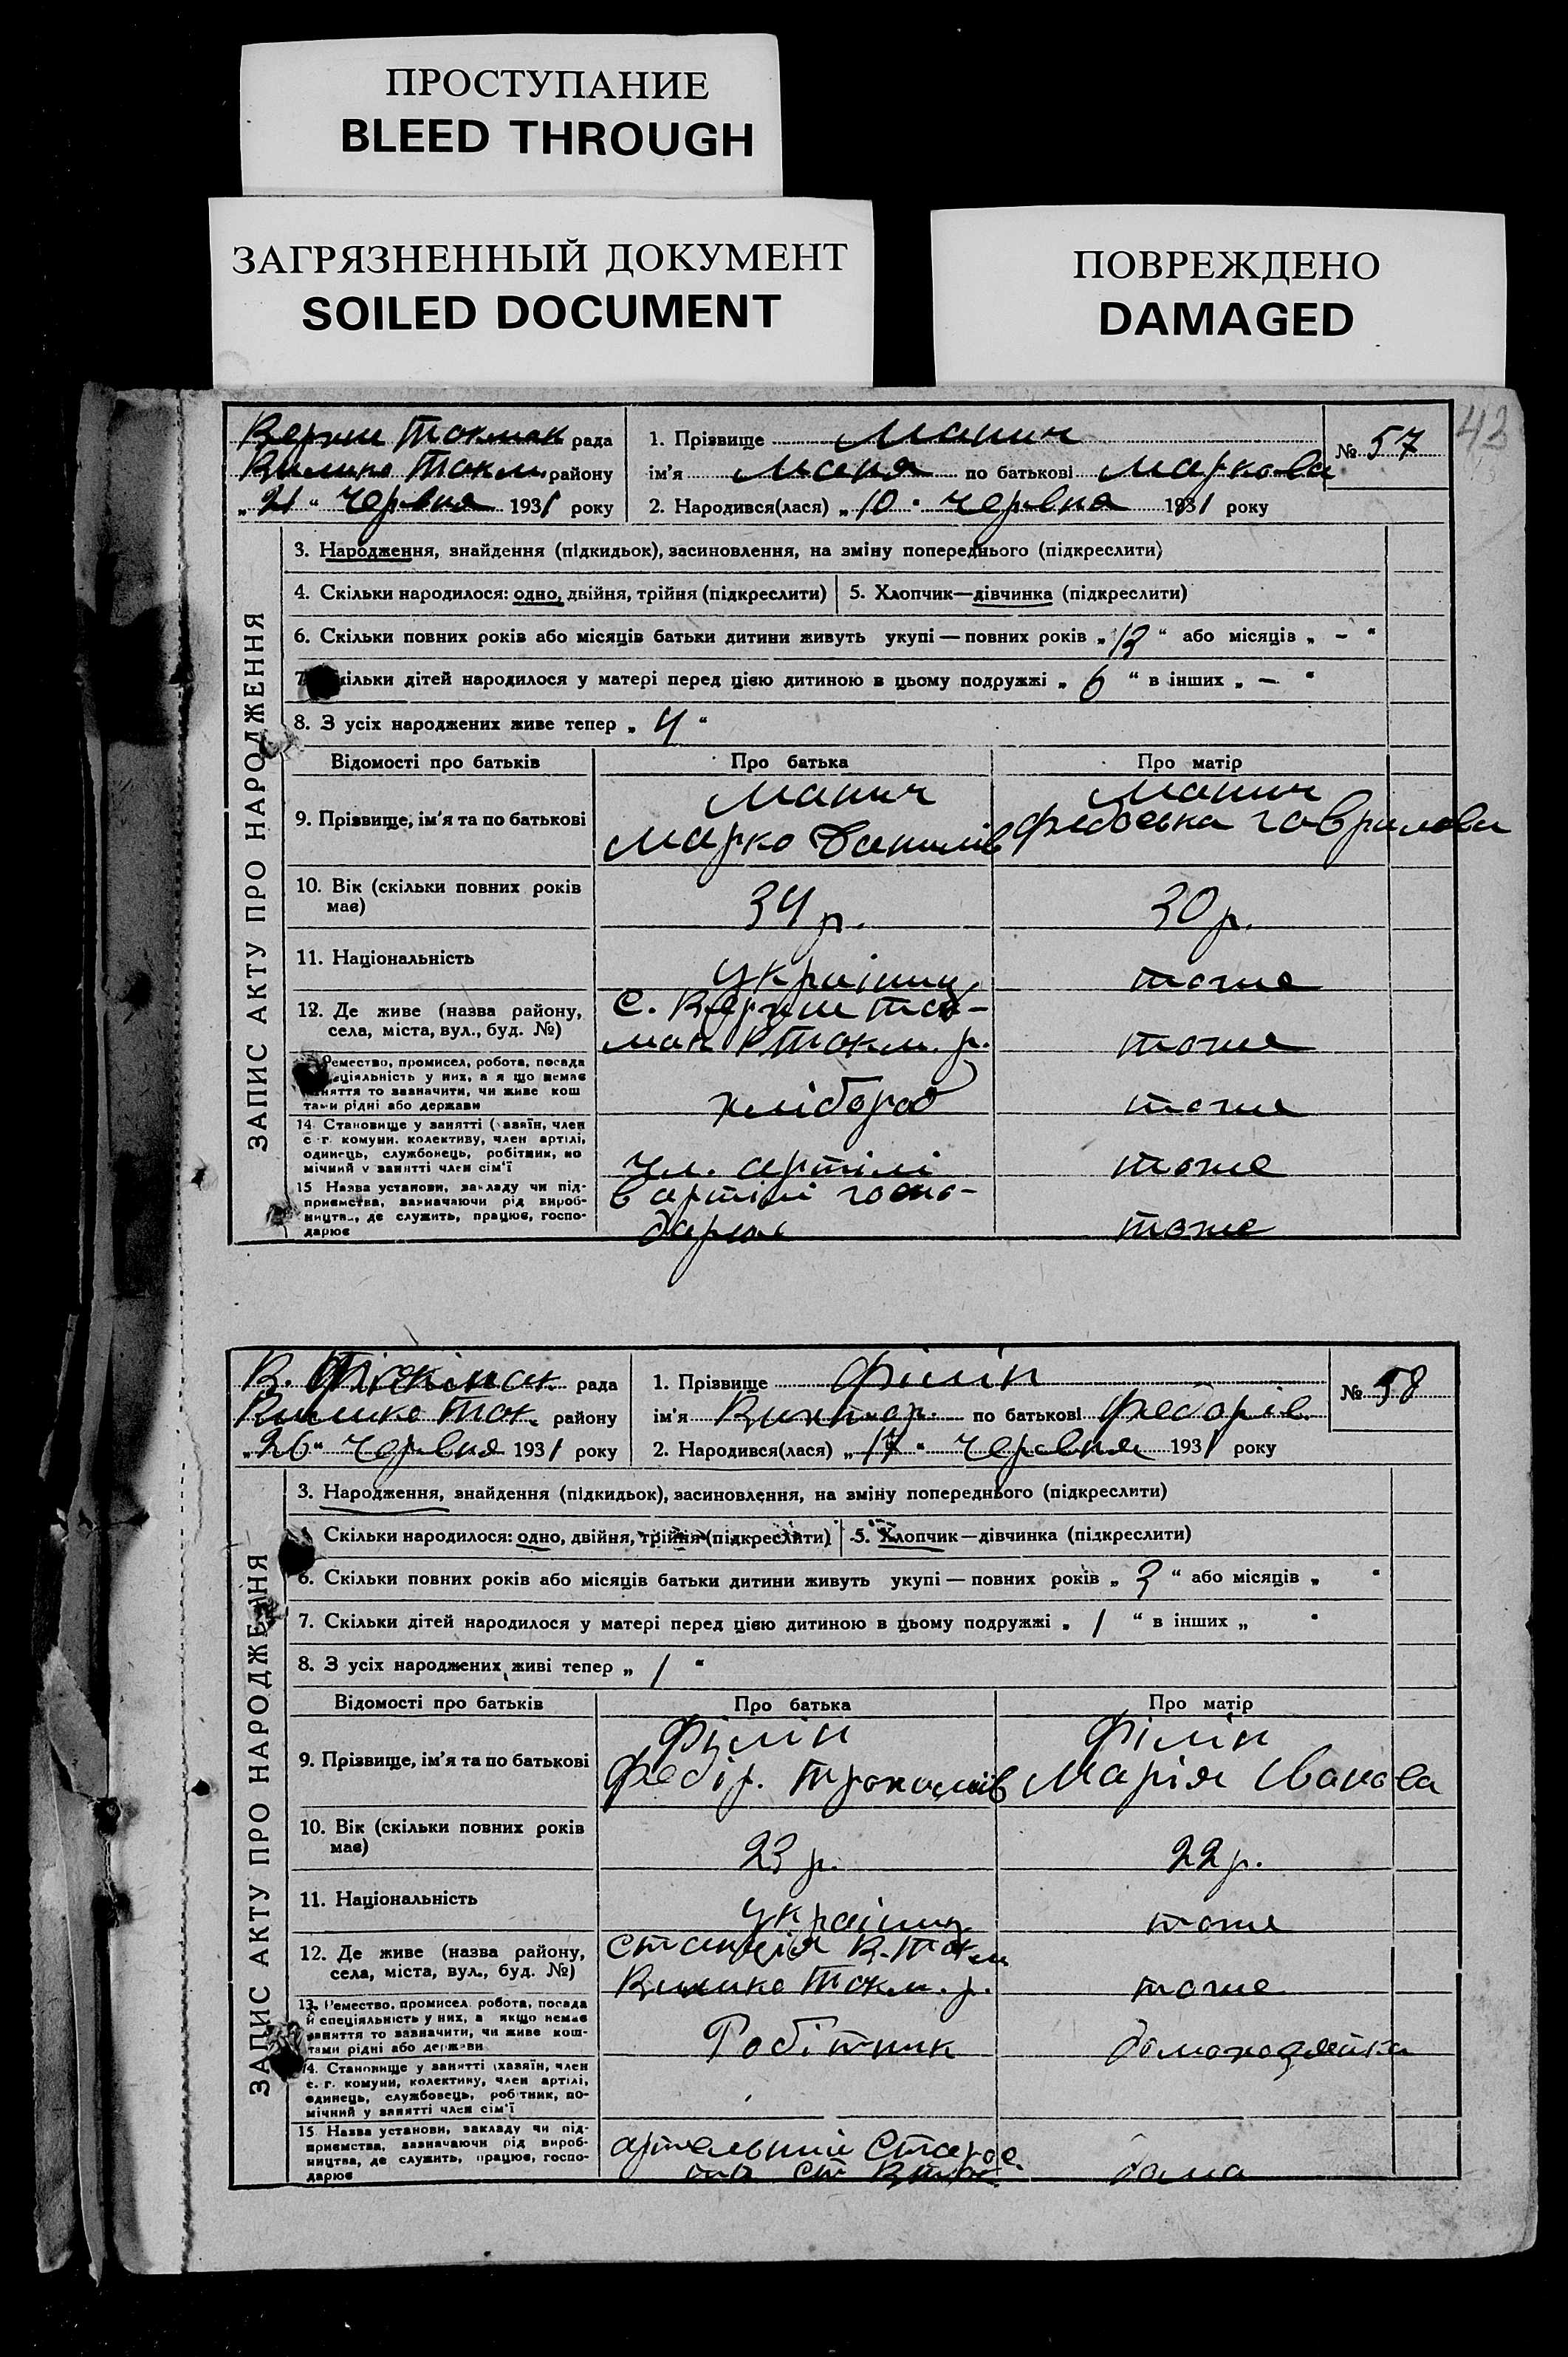 ПРОСТУПАНИЕ
BLEED THROUGH
ЗАГРЯЗНЕННЫЙ ДОКУМЕНТ
SOILED DOCUMENT
ПОВРЕЖДЕНО
DAMAGED
43
Верхне Токмак рада
Велико Токм. району
„21“ червня 1931 року
1. Прізвище Манич
ім'я Маня по батькові Маркова
2. Народився(лася) „10“ червня 1931 року
№ 57
ЗАПИС АКТУ ПРО НАРОДЖЕННЯ
3. Народження, знайдення (підкидьок), засиновлення, на зміну попереднього (підкреслити)
4. Скільки народилося: одно, двійня, трійня (підкреслити)
5. Хлопчик—дівчинка (підкреслити)
6. Скільки повних років або місяців батьки дитини живуть укупі — повних років „13“ або місяців „ - “
7. Скільки дітей народилося у матері перед цією дитиною в цьому подружжі „ 6 “ в інших „ — “
8. З усіх народжених живе тепер „ 4 “
Відомості про батьків
Про батька
Про матір
9. Прізвище, ім'я та по батькові
Манич
Марко Данилів
Манич
Федоська Гаврилова
10. Вік (скільки повних років
має)
34 р.
30 р.
11. Національність
українц
тоже
12. Де живе (назва району,
села, міста, вул., буд. №)
с. Верхне Ток-
мак Токм. р.
тоже
Ремество, промисел, робота, посада
ціяльність у них, а я що немає
няття то зазначити, чи живе кош
тами рідні або держави
хлібороб
тоже
14 Становище у занятті (хазяїн, член
с г. комуни, колективу, член артілі,
одинець, службовець, робітник, по
мічний у занятті член сім'ї
чл. артілі
тоже
15 Назва установи, закладу чи під-
приємства, зазначаючи рід вироб-
ництва, де служить, працює, госпо-
дарює
в артілі госпо-
дарює
тоже
В. Токмак рада
Велико Ток. району
„26“ червня 1931 року
1. Прізвище Філін
ім'я Виктор. по батькові Федорів
2. Народився(лася) „17“ червня 1931 року
№ 58
ЗАПИС АКТУ ПРО НАРОДЖЕННЯ
3. Народження, знайдення (підкидьок), засиновлення, на зміну попереднього (підкреслити)
Скільки народилося: одно, двійня, трійня (підкреслити)
5. Хлопчик—дівчинка (підкреслити)
6. Скільки повних років або місяців батьки дитини живуть укупі — повних років „ 3 “ або місяців „ “
7. Скільки дітей народилося у матері перед цією дитиною в цьому подружжі „ 1 “ в інших „ “
8. З усіх народжених живі тепер „ 1 “
Відомості про батьків
Про батька
Про матір
9. Прізвище, ім'я та по батькові
Філін
Федір.
Філін
Марія Іванова
10. Вік (скільки повних років
має)
23 р.
22 р.
11. Національність
українц
тоже
12. Де живе (назва району,
села, міста, вул., буд. №)
станція В. Токм
Велико Токм. р.
тоже
13. Ремество, промисел робота, посада
й спеціяльність у них, а якщо немає
заняття то зазначити, чи живе кош-
тами рідні або держави
Робітник
домохозяйка
14. Становище у занятті (хазяїн, член
с. г. комуни, колективу, член артілі,
одинець, службовець, робітник, по-
мічний у занятті член сім'ї
15 Назва установи, закладу чи під-
приємства, зазначаючи рід вироб-
ництва, де служить, працює, госпо-
дарює
артельний старос
та ст
дома